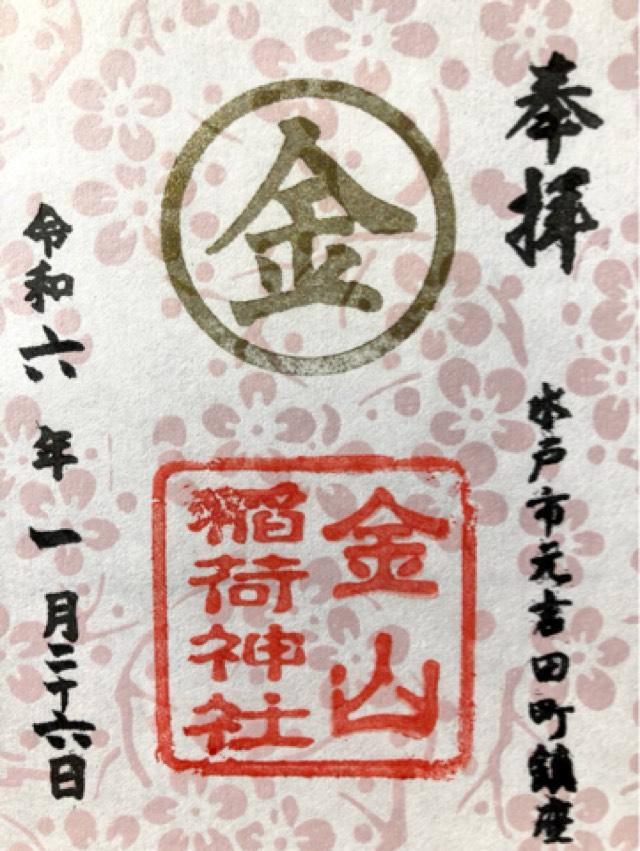 奉拝
水戸市元吉田町鎮座
金
金山
稲荷神社
令和六年一月二十六日